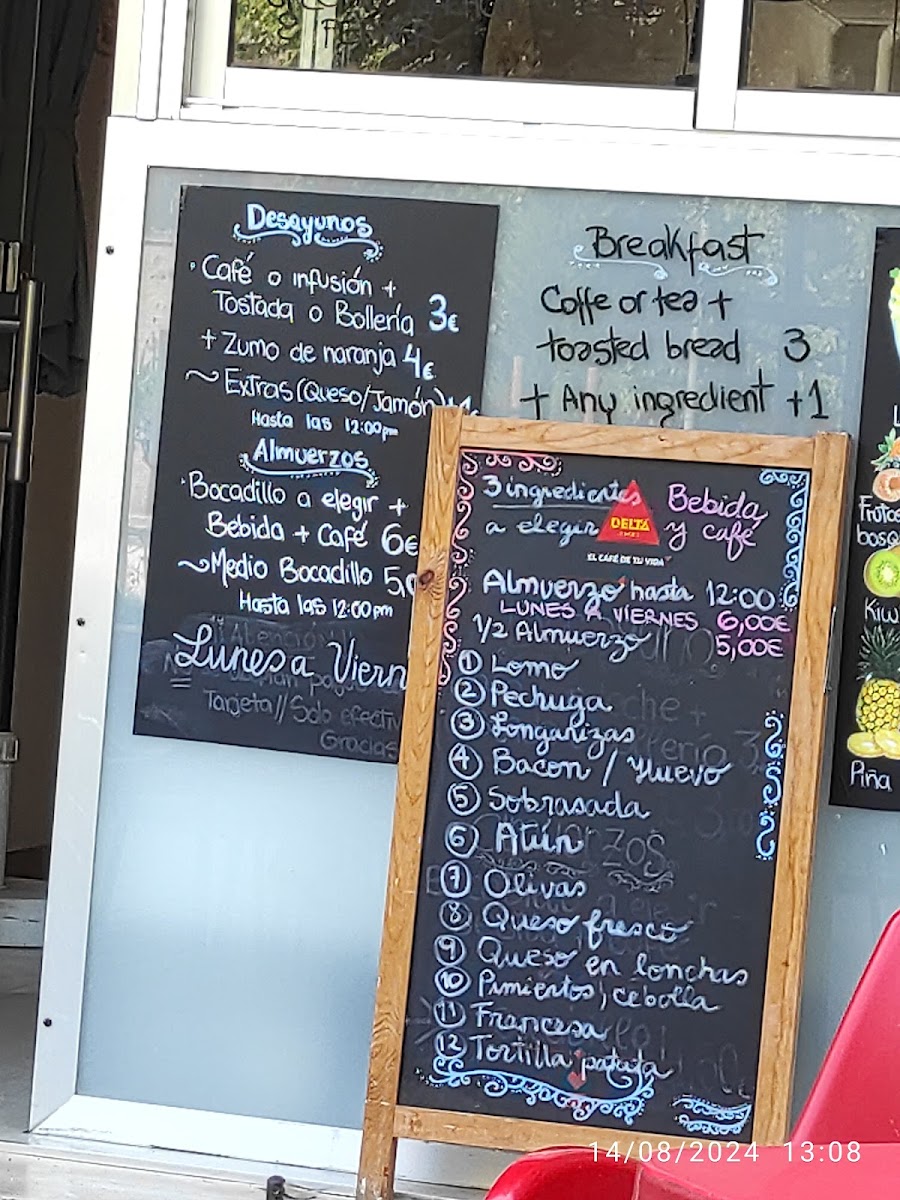 Desayunos
· Café o infusión +
Tostada o Bollería 3€
+ Zumo de naranja 4€
~ Extras (Queso/Jamón) +1€
Hasta las 12:00pm
Almuerzos
· Bocadillo a elegir +
Bebida + Café 6€
~Medio Bocadillo 5,0
Hasta las 12:00pm
Lunes a Viern
Atención
Tarjeta // Solo efectiv
Gracias
Breakfast
Coffe or tea +
toasted bread 3
+ Any ingredient +1
3 ingredientes
a elegir
DELTA
EL CAFÉ DE TU VIDA
Bebida
y café
Almuerzo hasta 12:00
LUNES A VIERNES 6,00€
1/2 Almuerzo 5,00€
1 Lomo
2 Pechuga
3 Longanizas
4 Bacon / Huevo
5 Sobrasada
6 Atún
7 Olivas
8 Queso fresco
9 Queso en lonchas
10 Pimientos, cebolla
11 Francesa
12 Tortilla patata
Frutos
bosq
Kiw
Piña
14/08/2024 13:08